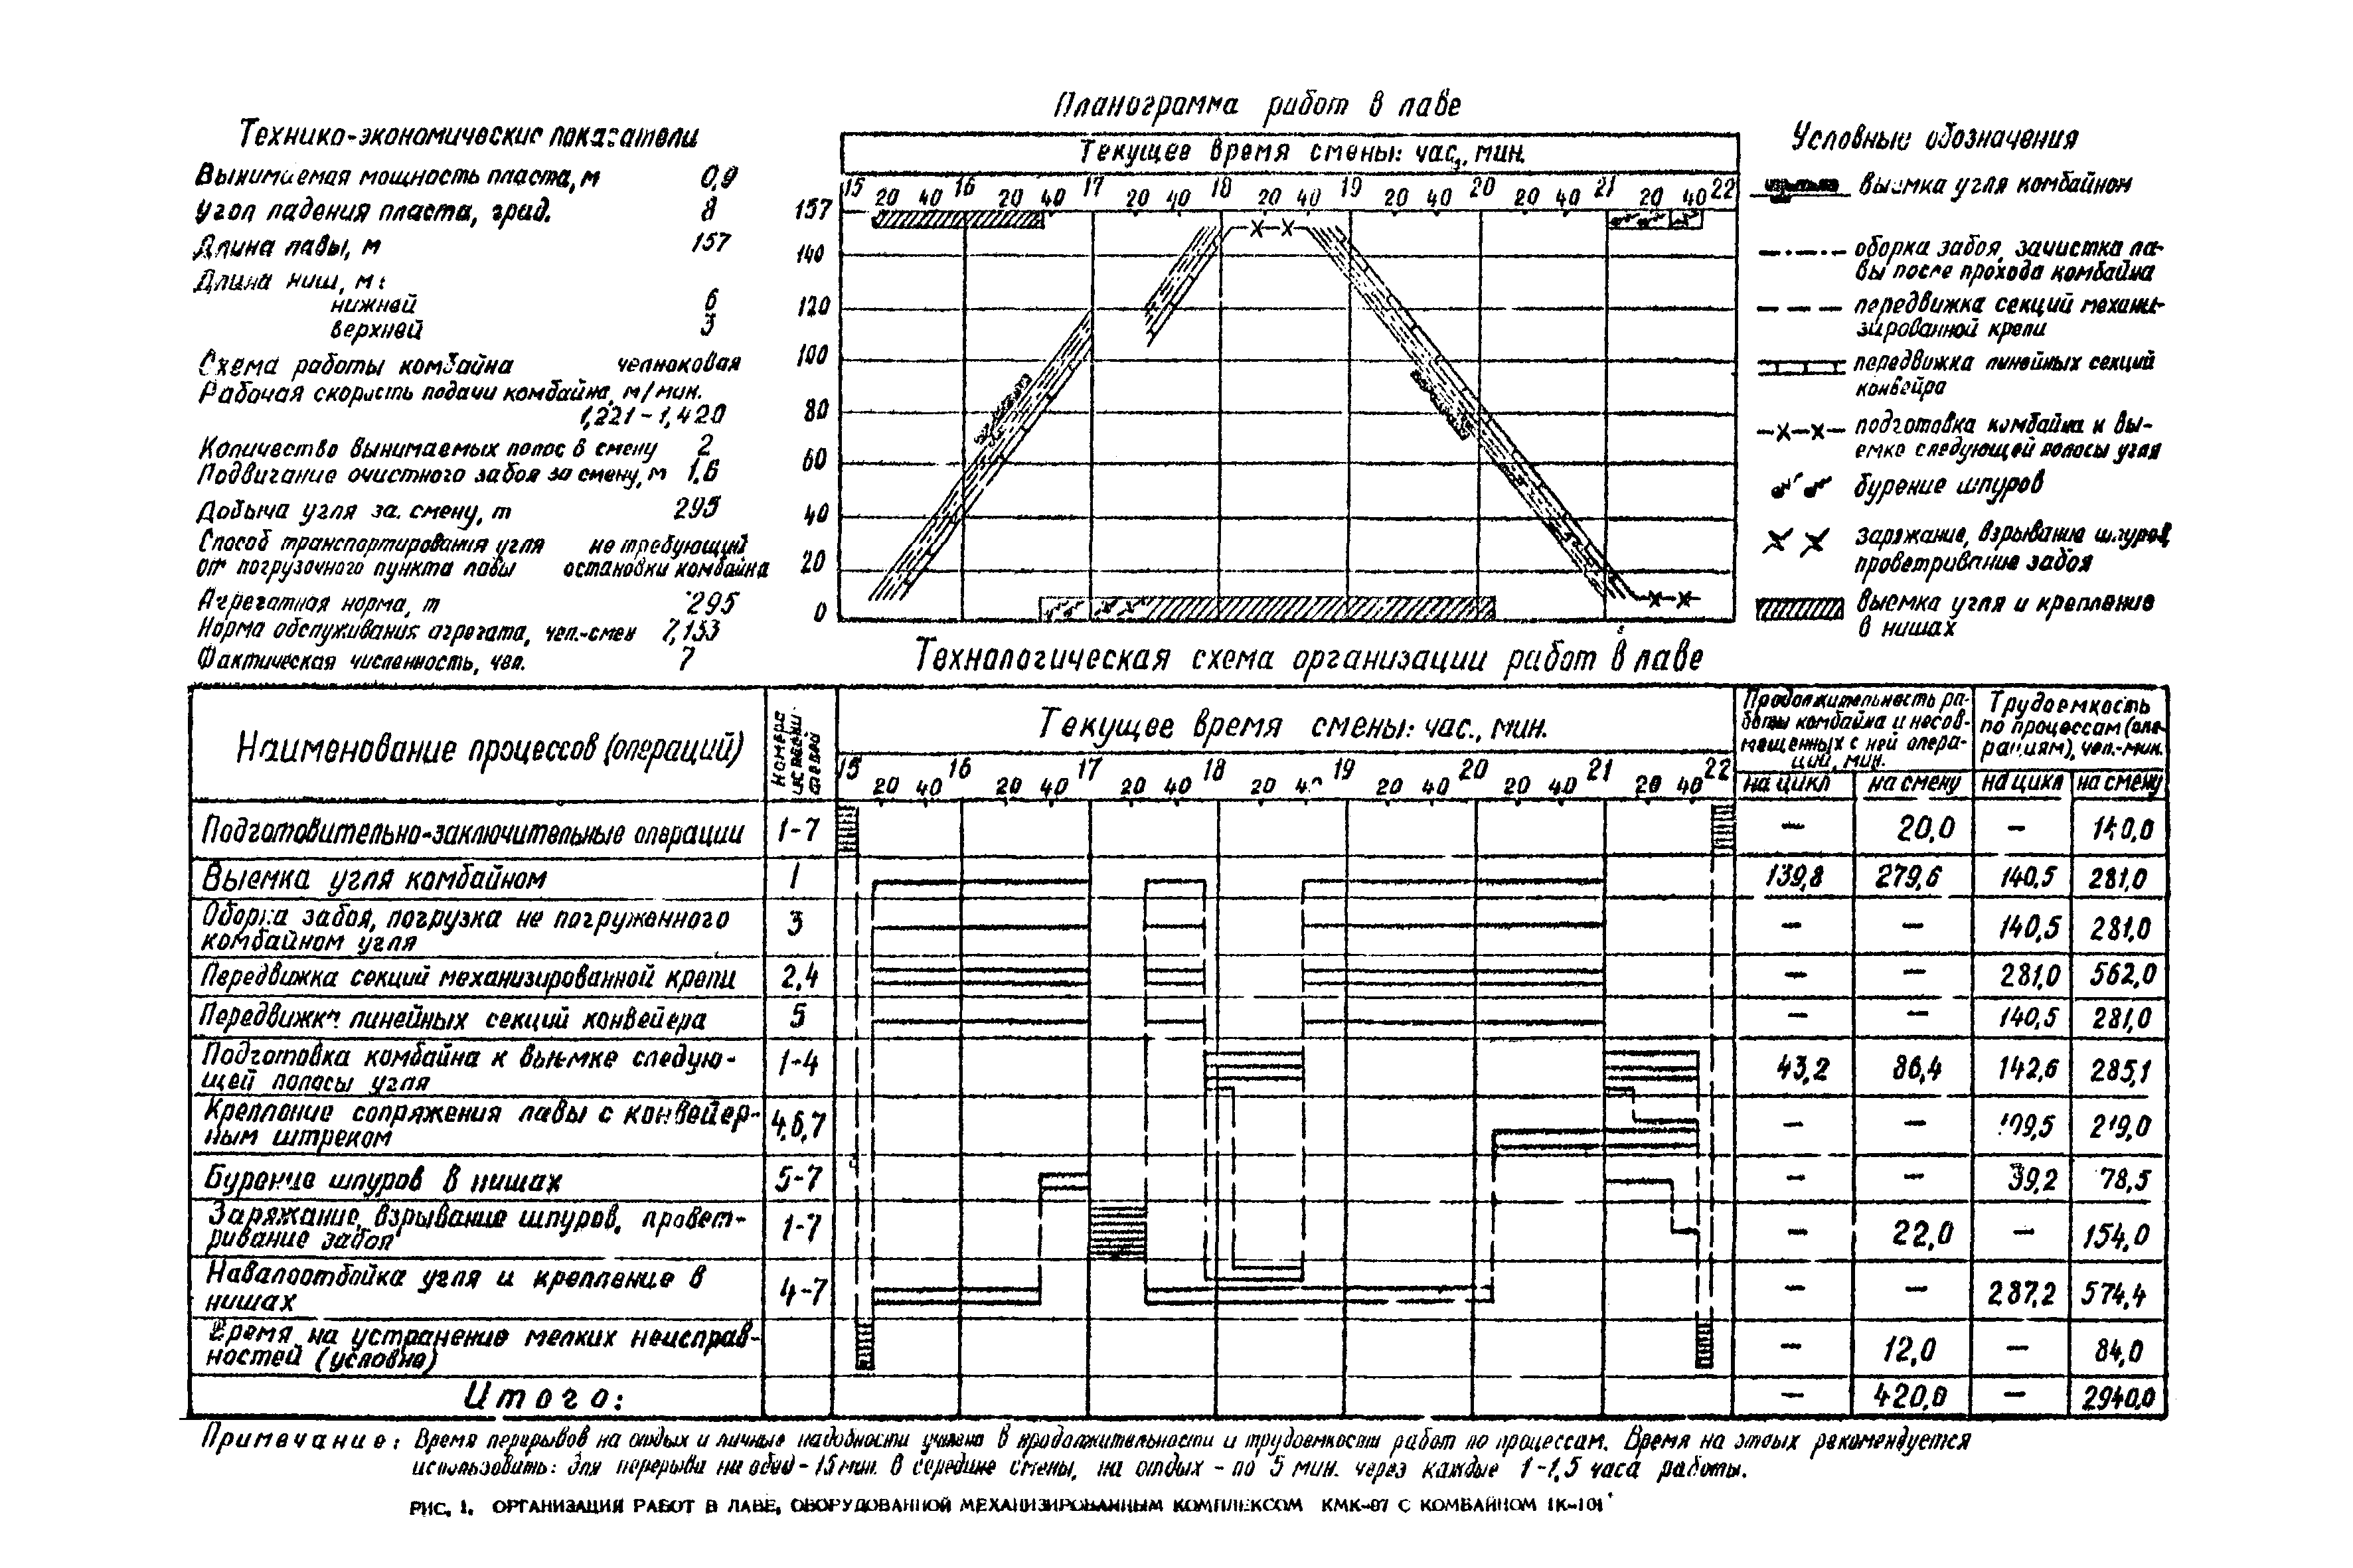 Планограмма работ в лаве
Технико-экономические показатели
Вынимаемая мощность пласта, м 0,9
Угол падения пласта, град. 8
Длина лавы, м 157
Длина ниш, м:
нижней 6
верхней 3
Схема работы комбайна челноковая
Рабочая скорость подачи комбайна, м/мин.
1,221-1,420
Количество вынимаемых полос в смену 2
Подвигание очистного забоя за смену, м 1,6
Добыча угля за смену, т 295
Способ транспортирования угля не требующий
от погрузочного пункта лавы остановки комбайна
Агрегатная норма, т 295
Норма обслуживания агрегата, чел.-смен 7,153
Фактическая численность, чел. 7
Текущее время смены: час., мин.
15 20 40 16 20 40 17 20 40 18 20 40 19 20 40 20 20 40 21 20 40 22
157
140
120
100
80
60
40
20
0
Условные обозначения
выемка угля комбайном
оборка забоя, зачистка ла-
вы после прохода комбайна
передвижка секций механи-
зированной крепи
передвижка линейных секций
конвейра
подготовка комбайна к вы-
емке следующей полосы угля
бурение шпуров
заряжание, взрывание шпуров,
проветривание забоя
выемка угля и крепление
в нишах
Технологическая схема организации работ в лаве
Наименование процессов (операций)
Номера
исполни-
телей
Текущее время смены: час., мин.
15 20 40 16 20 40 17 20 40 18 20 40 19 20 40 20 20 40 21 20 40 22
Продолжительность ра-
боты комбайна и несов-
мещенных с ней опера-
ций, мин.
на цикл на смену
Трудоемкость
по процессам (опе-
рациям), чел.-мин.
на цикл на смену
Подготовительно-заключительные операции 1-7 — 20,0 — 140,0
Выемка угля комбайном 1 139,8 279,6 140,5 281,0
Оборка забоя, погрузка не погруженного
комбайном угля 3 — — 140,5 281,0
Передвижка секций механизированной крепи 2,4 — — 281,0 562,0
Передвижка линейных секций конвейера 5 — — 140,5 281,0
Подготовка комбайна к выемке следую-
щей полосы угля 1-4 43,2 86,4 142,6 285,1
Крепление сопряжения лавы с конвейер-
ным штреком 4,6,7 — — 109,5 219,0
Бурение шпуров в нишах 5-7 — — 39,2 78,5
Заряжание, взрывание шпуров, провет-
ривание забоя 1-7 — 22,0 — 154,0
Навалоотбойка угля и крепление в
нишах 4-7 — — 287,2 574,4
Время на устранение мелких неисправ-
ностей (условно) — 12,0 — 84,0
Итого: — 420,0 — 2940,0
Примечание: Время перерывов на отдых и личные надобности учтено в продолжительности и трудоемкости работ по процессам. Время на отдых рекомендуется
использовать: для перерыва на обед - 15 мин. в середине смены, на отдых - по 5 мин. через каждые 1-1,5 часа работы.
РИС. 1. ОРГАНИЗАЦИЯ РАБОТ В ЛАВЕ, ОБОРУДОВАННОЙ МЕХАНИЗИРОВАННЫМ КОМПЛЕКСОМ КМК-97 С КОМБАЙНОМ 1К-101